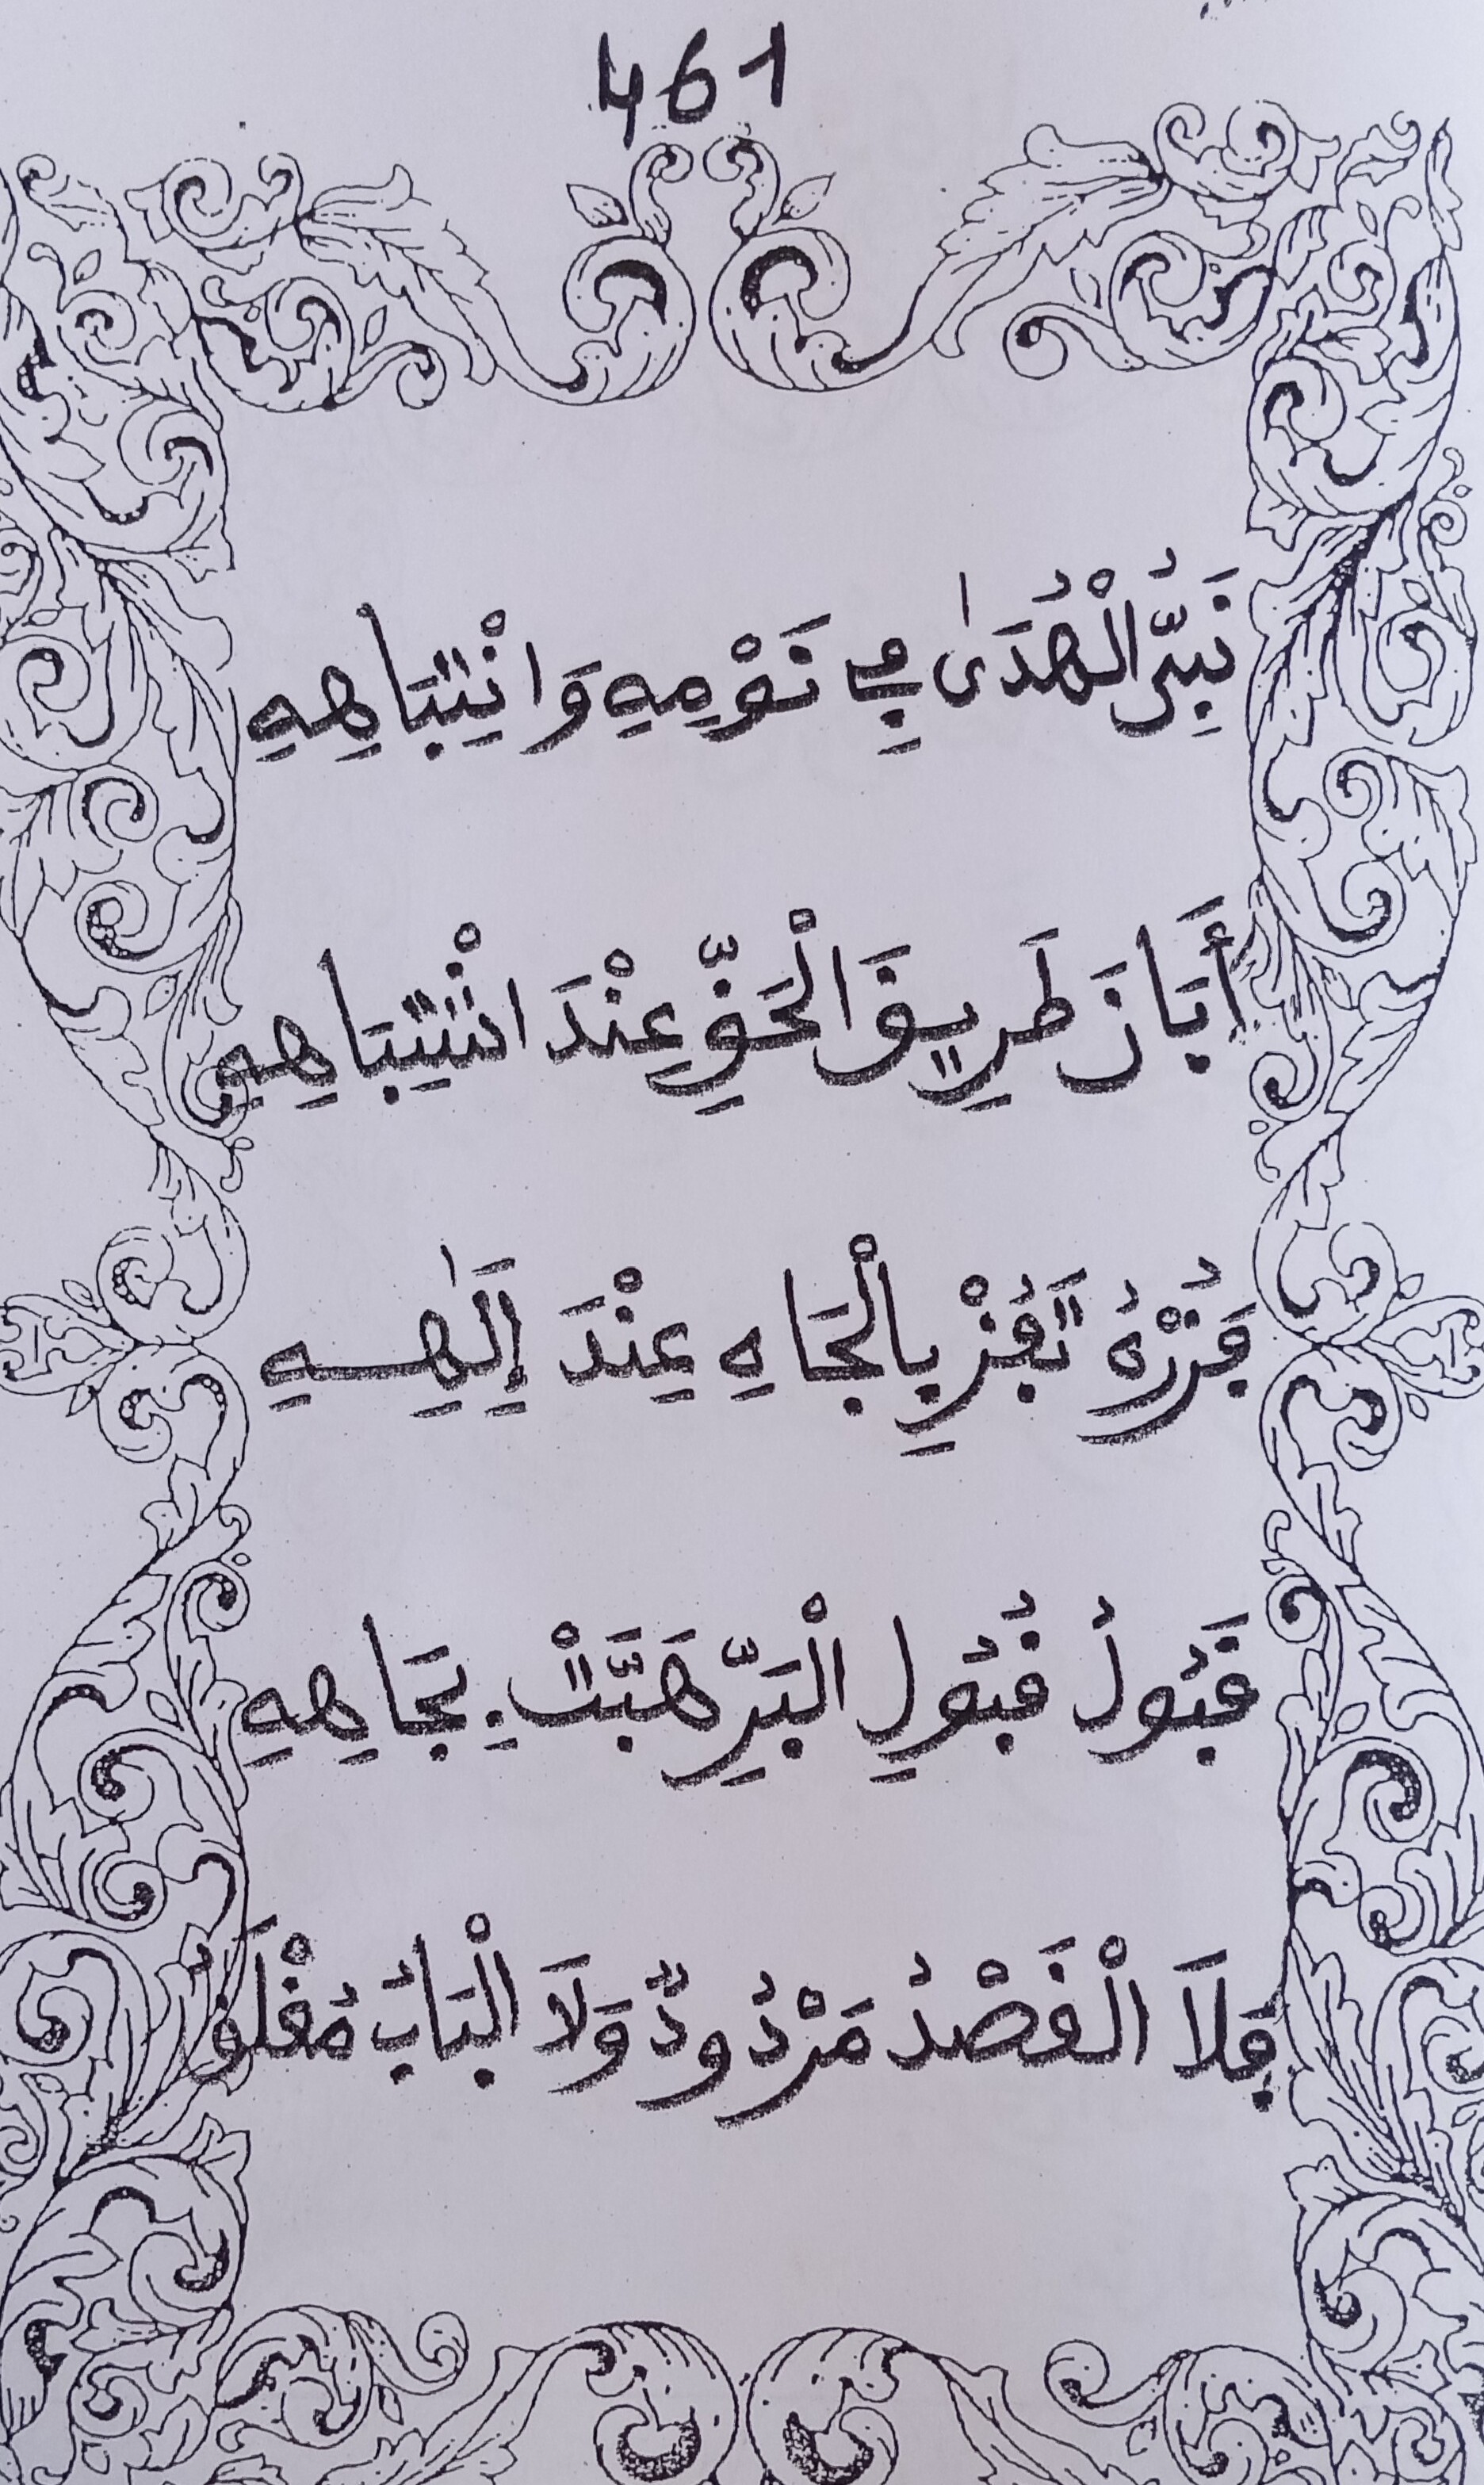 461
نَبِيُّ الْهُدَىٰ فِي نَوْمِهِ وَانْتِبَاهِهِ
أَبَانَ طَرِيقَ الْحَقِّ عِنْدَ اشْتِبَاهِهِ
فَزُرْهُ تَفُزْ بِالْجَاهِ عِنْدَ إِلَٰهِهِ
قَبُولُ قُبُولِ الْبَرِّ هَبَّتْ بِجَاهِهِ
فَلَا الْقَصْدُ مَرْدُودٌ وَلَا الْبَابُ مُغْلَقُ